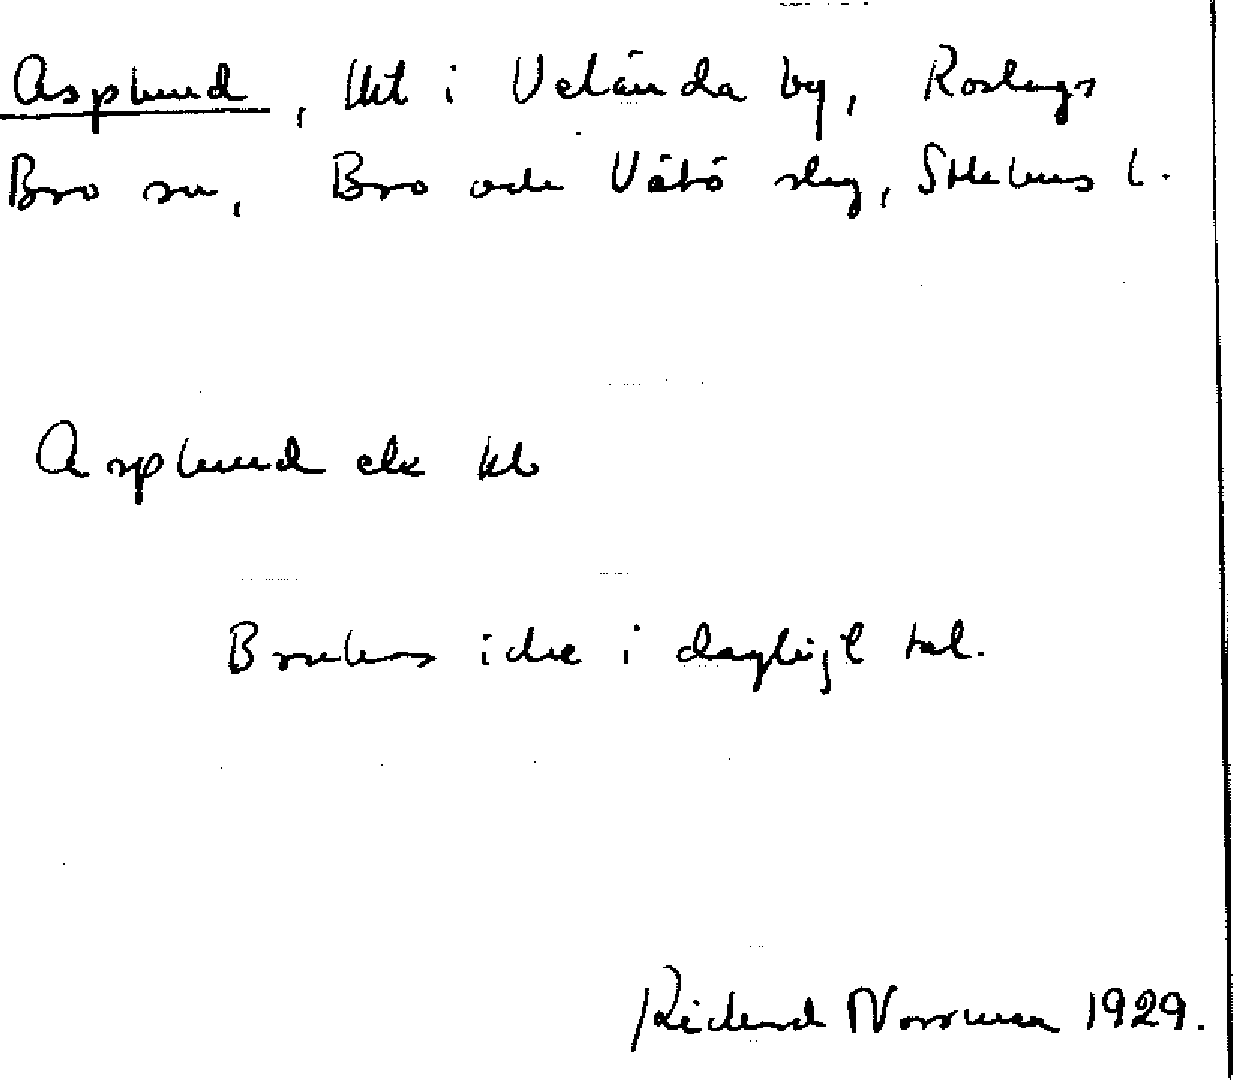 Asplund, lht i Veländа by, Roslags
Bro sn, Bro och Vätö slg, Sthlms l.
Asplund
Brukas icke i dagligt tal.
Rickard Norrman 1929.